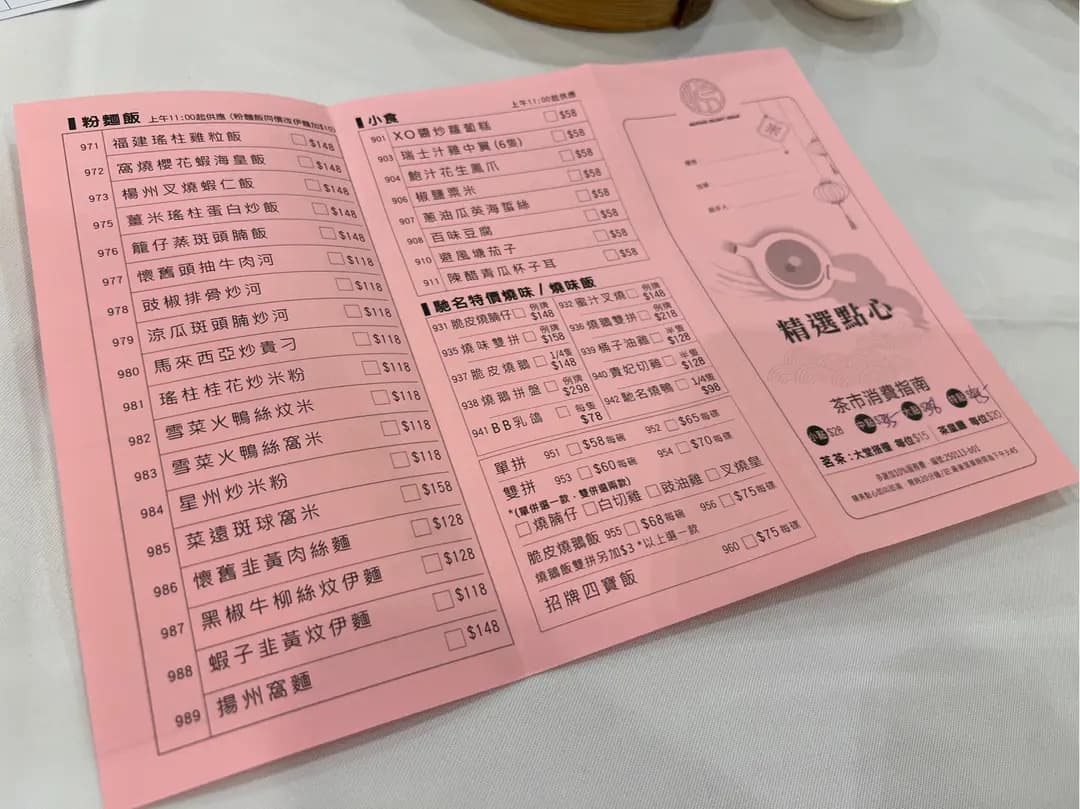 粉麵飯 上午11:00起供應 (粉麵飯同價改伊麵加$10)
971 福建瑤柱雞粒飯 $148
972 窩燒櫻花蝦海皇飯 $148
973 楊州叉燒蝦仁飯 $148
975 薑米瑤柱蛋白炒飯 $148
976 籠仔蒸斑頭腩飯 $148
977 懷舊頭抽牛肉河 $118
978 豉椒排骨炒河 $118
979 涼瓜斑頭腩炒河 $118
980 馬來西亞炒貴刁 $118
981 瑤柱桂花炒米粉 $118
982 雪菜火鴨絲炆米 $118
983 雪菜火鴨絲窩米 $118
984 星州炒米粉 $118
985 菜遠斑球窩米 $158
986 懷舊韭黃肉絲麵 $128
987 黑椒牛柳絲炆伊麵 $128
988 蝦子韭黃炆伊麵 $118
989 揚州窩麵 $148
小食 上午11:00起供應
901 XO醬炒蘿蔔糕 $58
903 瑞士汁雞中翼(6隻) $58
904 鮑汁花生鳳爪 $58
906 椒鹽粟米 $58
907 蔥油瓜英海蜇絲 $58
908 百味豆腐 $58
910 避風塘茄子 $58
911 陳醋青瓜杯子耳 $58
馳名特價燒味 / 燒味飯
931 脆皮燒腩仔 例牌 $148 932 蜜汁叉燒 例牌 $148
935 燒味雙拼 例牌 $158 936 燒鵝雙拼 例牌 $218
937 脆皮燒鵝 1/4隻 $148 939 橘子油雞 半隻 $128
938 燒鵝拼盤 例牌 $298 940 貴妃切雞 半隻 $128
941 BB乳鴿 每隻 $78 942 馳名燒鴨 1/4隻 $98
單拼 951 $58每碗 952 $65每碟
雙拼 953 $60每碗 954 $70每碟
*(單併選一款·雙併選兩款)
燒腩仔 白切雞 豉油雞 叉燒皇
脆皮燒鵝飯 955 $68每碗 956 $75每碟
燒鵝飯雙拼另加$3 *以上選一款
招牌四寶飯 960 $75每碟
茶
精選點心
茶市消費指南
小點 $28 中點
茗茶:大堂搭檯 每位$15 茶盅廳 每位$20
亦須加10%服務費 · 編號:250113-b01